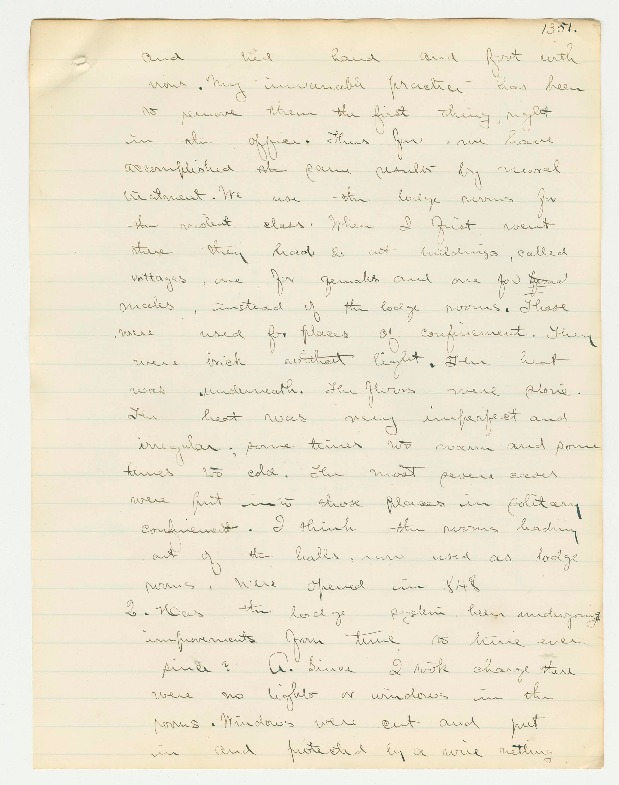 1351.
and tied hand and foot with
irons. My invariable practice has been
to remove them the first thing, right
in the office. Thus far we have
accomplished the same results by moral
treatment. We use the lodge rooms for
the violent class. When I first went
there they had 2 out buildings, called
cottages, one for females and one for
males, instead of the lodge rooms. These
were used for places of confinement. They
were brick without light. The heat
was underneath. The floors were stone.
The heat was very imperfect and
irregular, some times too warm and some
times too cold. The most severe cases
were put into those places in solitary
confinement. I think the rooms leading
out of the halls, now used as lodge
rooms, were opened in 1848
Q. Has the lodge system been undergoing
improvements from time to time ever
since? A. Since I took charge there
were no lights or windows in the
rooms. Windows were cut and put
in and protected by a wire netting